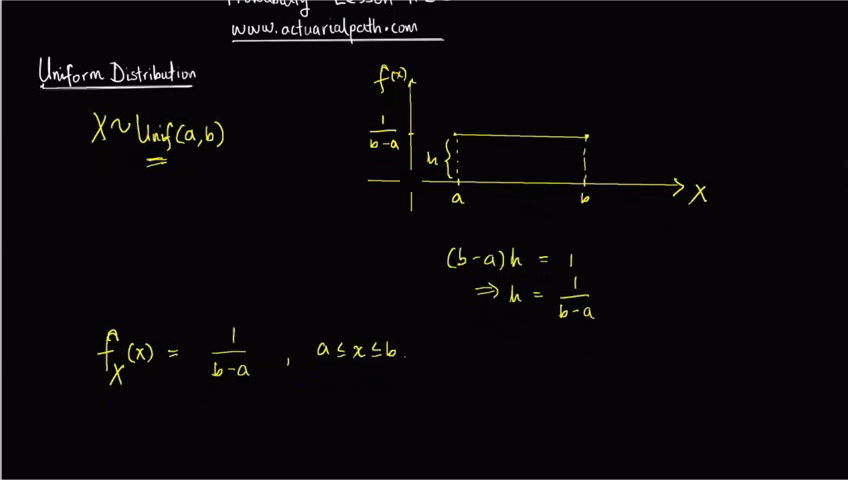 Probability Lesson
www.actuarialpath.com
Uniform Distribution
X ~ Unif(a,b)
f(x)
1/(b-a)
h
a
b
X
(b-a)h = 1
⇒ h = 1/(b-a)
f_X(x) = 1/(b-a) , a ≤ x ≤ b.